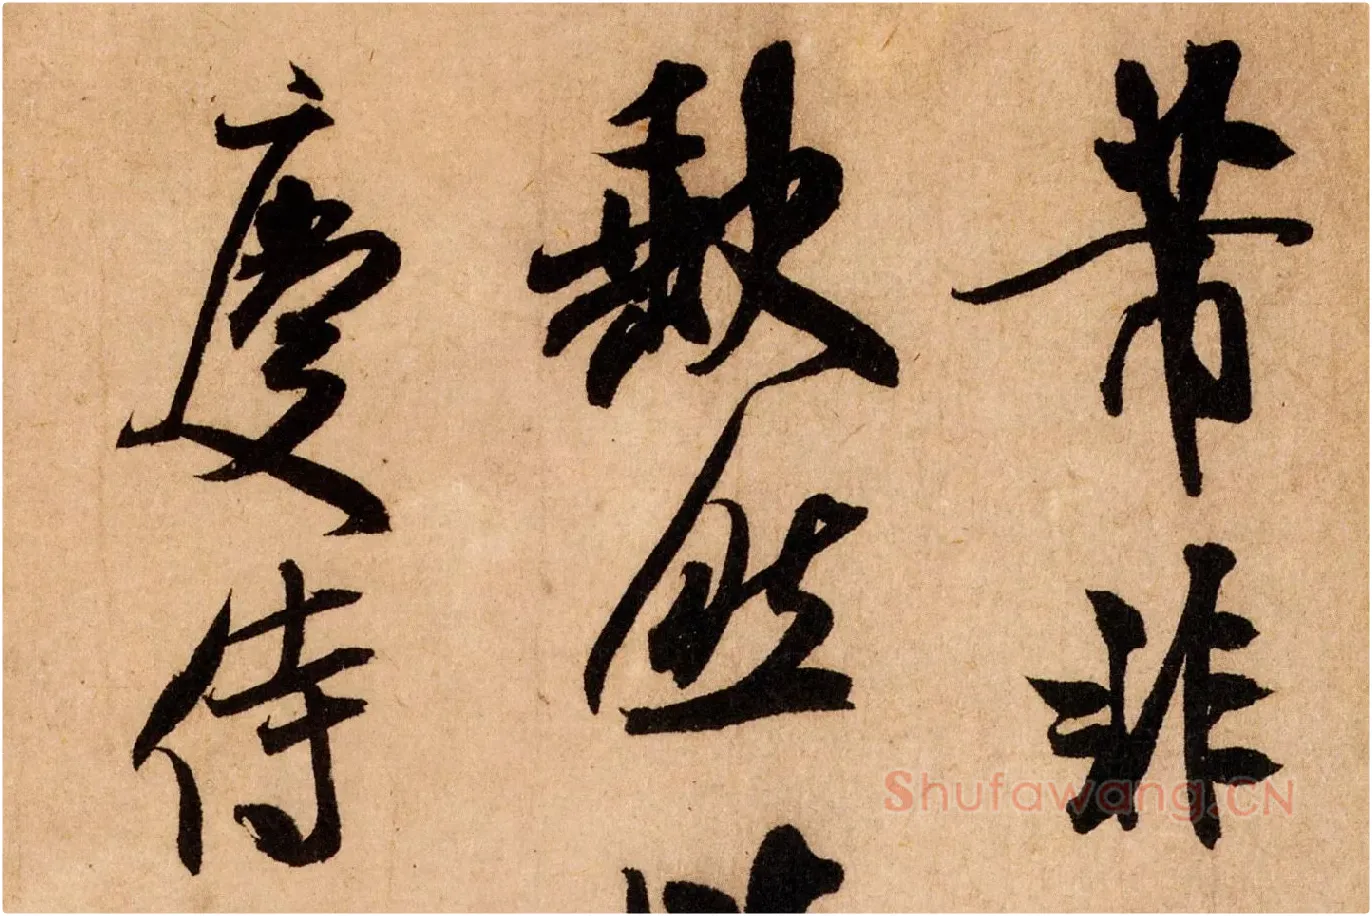 芾非
缺然
慶侍
Shufawang.CN